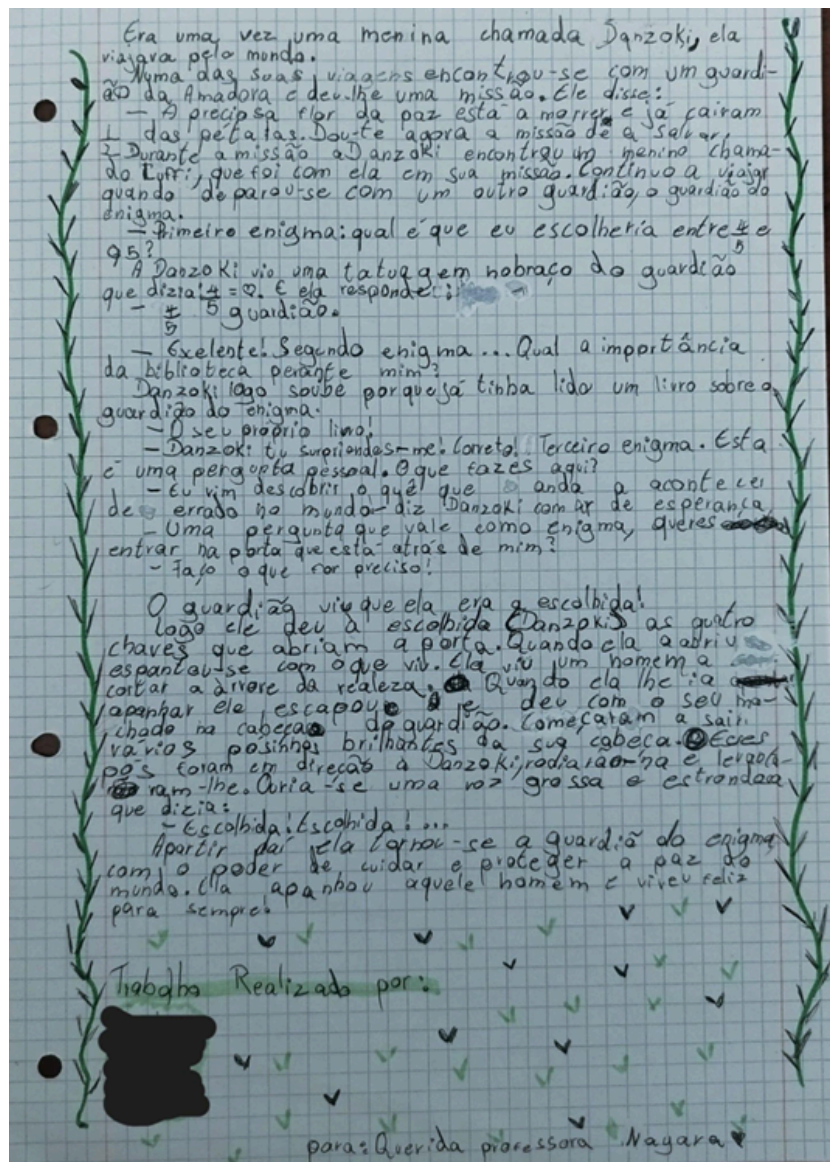 Era uma vez uma menina chamada Danzoki, ela
viajava pelo mundo.
Numa das suas viagens encontrou-se com um guardi-
ão da Amadora e deu-lhe uma missão. Ele disse:
— A preciosa flor da paz está a morrer e já cairam
1/2 das petalas. Dou-te agora a missão de a salvar.
Durante a missão a Danzoki encontrou um menino chama-
do Luffi, que foi com ela em sua missão. Continuo a viajar
quando deparou-se com um outro guardião, o guardião do
enigma.
— Primeiro enigma: qual é que eu escolheria entre 4/5 e
95?
A Danzoki vio uma tatuagem nobraço do guardião
que dizia: 4/5 = ♡. E ela respondeu:
— 4/5 guardião.
— Exelente! Segundo enigma... Qual a importância
da biblioteca perante mim?
Danzoki logo soube porque já tinha lido um livro sobre o
guardião do enigma.
— O seu próprio livro!
— Danzoki tu surpriendes-me! Correto! Terceiro enigma. Esta
é uma pergunta pessoal. O que fazes aqui?
— Eu vim descobrir o quê que anda a acontecer
de errado no mundo - diz Danzoki com ar de esperança
— Uma pergunta que vale como enigma, queres
entrar na porta que está atrás de mim?
— Faço o que for preciso!
O guardião viu que ela era a escolhida!
Logo ele deu à escolhida (Danzoki) as quatro
chaves que abriam a porta. Quando ela a abriu
espantou-se com o que viu. Ela viu um homem a
cortar a árvore da realeza. Quando ela lhe ia
apanhar ele escapou e deu com o seu ma-
chado na cabeça do guardião. Começaram a sair
vários posinhos brilhantes da sua cabeça. Esses
pós foram em direção à Danzoki, rodiarão-na e
ram-lhe. Ouvia-se uma voz grossa e
que dizia:
— Escolhida! Escolhida!...
Apartir daí ela tornou-se a guardiã do enigma
com o poder de cuidar e proteger a paz do
mundo. Ela apanhou aquele homem e viveu feliz
para sempre.
Trabalho Realizado por:
para: Querida professora Nayara ♥